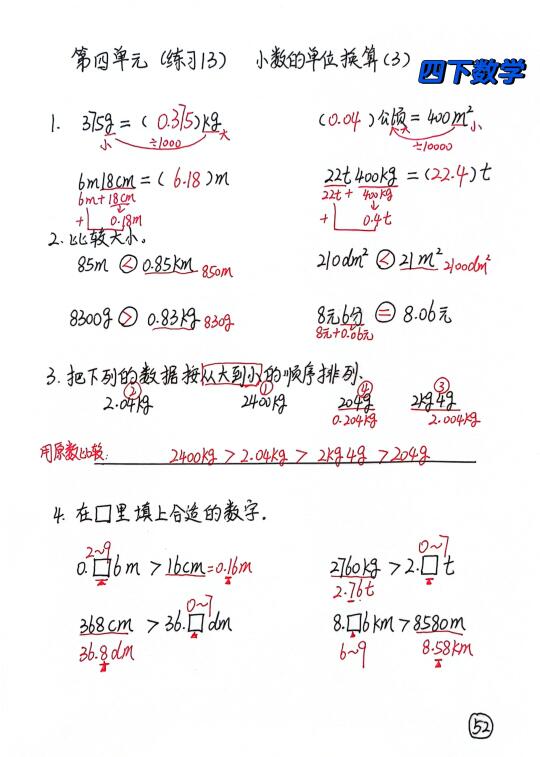 第四单元（练习13） 小数的单位换算（3）
四下数学
1. 375g=(0.375)kg (0.04)公顷=400m²
小 ÷1000 大 大 ÷10000 小
6m18cm=(6.18)m 22t400kg=(22.4)t
6m+18cm 22t+400kg
+ 0.18m + 0.4t
2. 比较大小。
85m < 0.85km 850m 210dm² < 21m² 2100dm²
8300g > 0.83kg 830g 8元6分 = 8.06元
8元+0.06元
3. 把下列的数据按从大到小的顺序排列.
② ① ④ ③
2.04kg 2400kg 204g 2kg4g
0.204kg 2.004kg
用原数比较: 2400kg > 2.04kg > 2kg4g > 204g
4. 在□里填上合适的数字.
2~9 0~7
0.□6m > 16cm=0.16m 2760kg > 2.□t
2.76t
0~7
368cm > 36.□dm 8.□6km > 8580m
36.8dm 6~9 8.58km
52